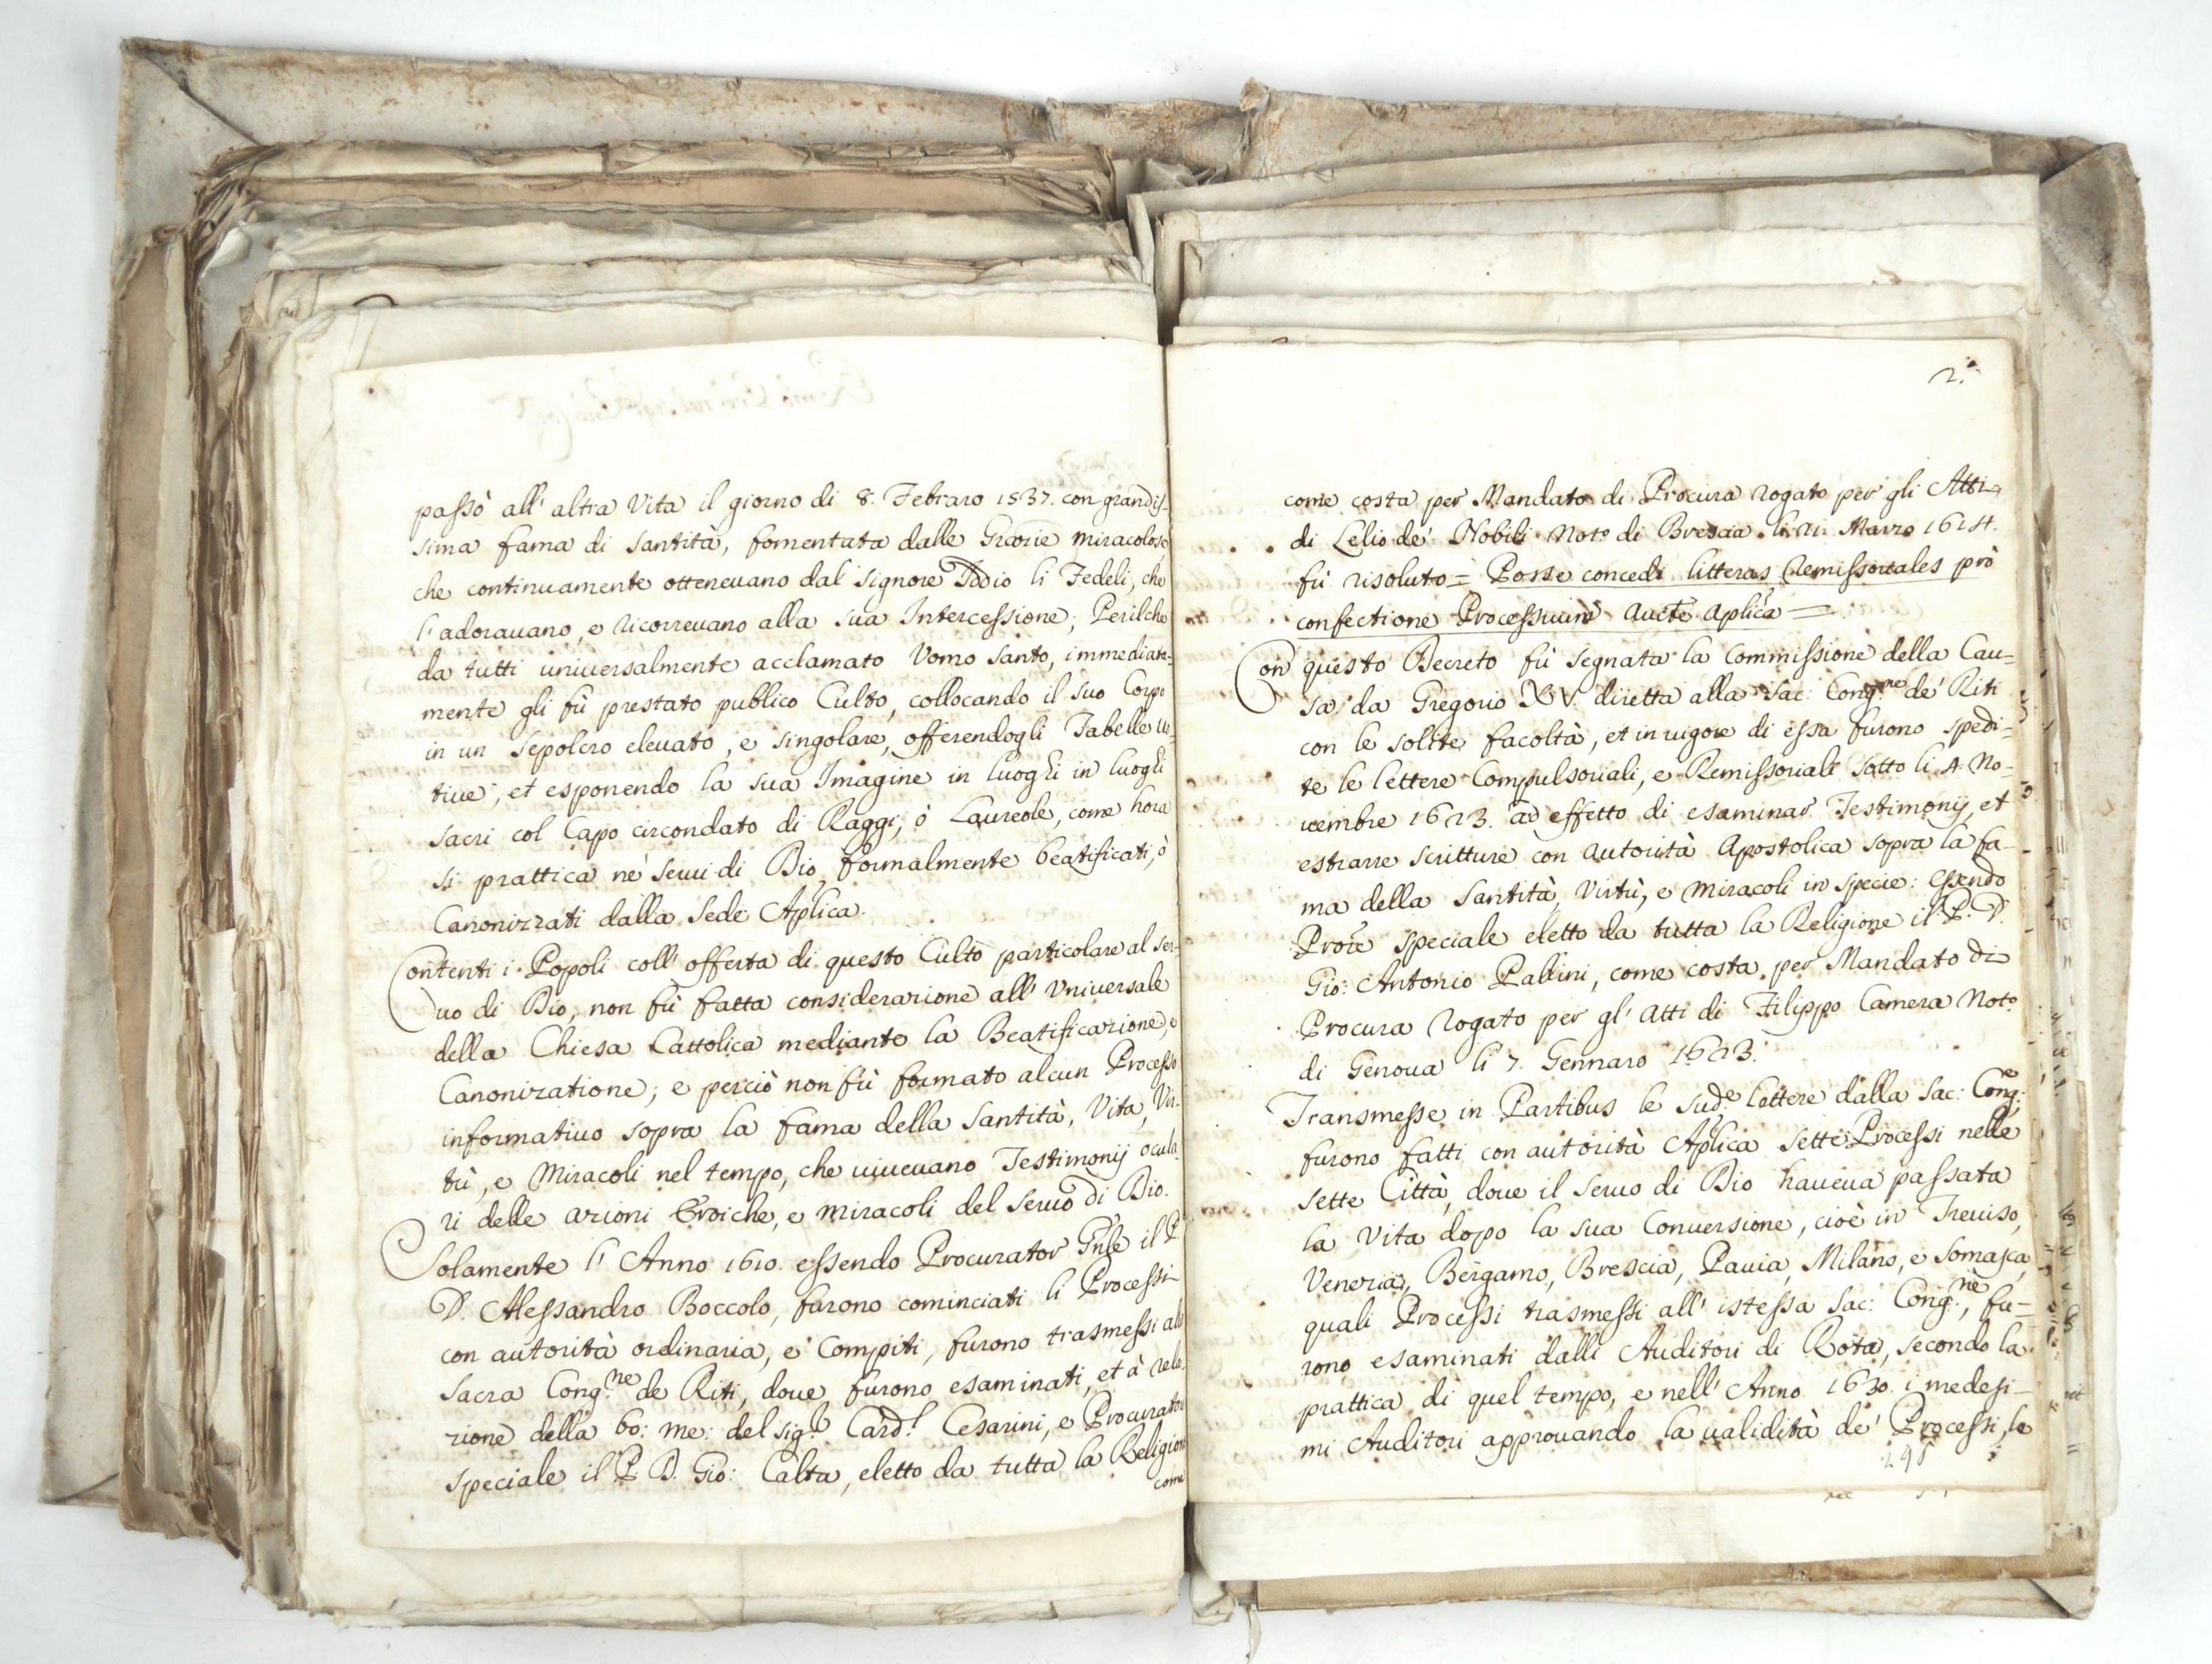 passò all' altra Vita il giorno di 8. Febraro 1537. con grandis-
sima fama di santità, fomentata dalle Grazie miracolose
che continuamente otteneuano dal Signore Iddio li Fedeli, che
l'adorauano, e ricorreuano alla sua Intercessione; Perilche
da tutti uniuersalmente acclamato Vomo santo, immediata-
mente gli fù prestato publico Culto, collocando il suo Corpo
in un sepolcro eleuato, e singolare, offerendogli Tabelle uo-
tiue, et esponendo la sua Imagine in luoghi in luoghi
sacri col Capo circondato di Raggi, ò Laureole, come hora
si prattica nè serui di Dio formalmente beatificati, ò
Canonizzati dalla Sede Aplica.
Contenti i Popoli coll' offerta di questo Culto particolare al ser-
uo di Dio, non fù fatta considerazione all' Vniuersale
della Chiesa Cattolica mediante la Beatificazione, e
Canonizatione; e perciò non fù formato alcun Processo
informatiuo sopra la fama della santità, Vita, Vir-
tù, e Miracoli nel tempo, che uiueuano Testimonij ocula-
ri delle azioni Eroiche, e miracoli del seruo di Dio.
Solamente l' Anno 1610. essendo Procurator Gnle il P.
D. Alessandro Boccolo, furono cominciati li Processi
con autorità ordinaria, e Compiti, furono trasmessi alla
Sacra Cong.ne de Riti, doue furono esaminati, et à rela-
zione della bo: me: del sig.r Card.l Cesarini, e Procurator
speciale il P. D. Gio: Calta, eletto da tutta la Religione
come
2.
come costa per Mandato di Procura rogato per gli Atti
di Lelio de' Nobili Not.o di Brescia li 21 Marzo 1614.
fù risoluto = Posse concedi litteras Remissoriales prò
confectione Processuum aucte aplica =
Con questo Decreto fù segnata la Commissione della Cau=
sa da Gregorio XV. diretta alla Sac: Cong.ne de' Riti
con le solite facoltà, et in uigore di essa furono spedi-
te le lettere Compulsoriali, e Remissoriali sotto li 4. No-
uembre 1623. ad effetto di esaminar Testimonij, et
estrarre scritture con autorità Apostolica sopra la fa-
ma della Santità, Virtù, e Miracoli in specie: essendo
Proré speciale eletto da tutta la Religione il P. D.
Gio: Antonio Pallini, come costa per Mandato di
Procura rogato per gl' atti di Filippo Camera Not.o
di Genoua li 7. Gennaro 1623.
Transmesse in Partibus le sud.e lettere dalla Sac: Cong:
furono fatti con autorità Aplica sette Processi nelle
sette Città, doue il seruo di Dio haueua passata
la Vita dopo la sua Conuersione, cioè in Treuiso,
Venezia, Bergamo, Brescia, Pauia, Milano, e Somasca,
quali Processi trasmessi all' istessa Sac: Cong.ne, fu-
rono esaminati dalli Auditori di Rota, secondo la
prattica di quel tempo, e nell' Anno 1630. i medesi-
mi Auditori approuando la ualidità de' Processi, le